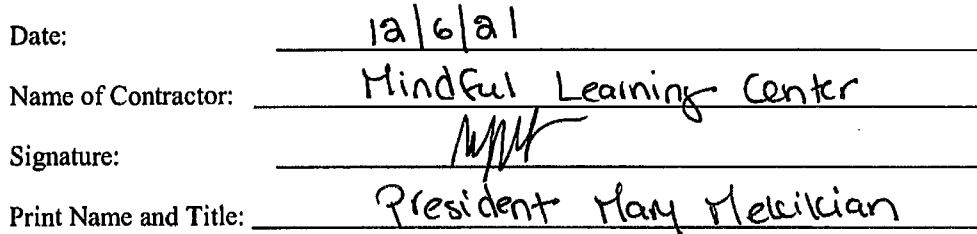 Date: 12/6/21
Name of Contractor: Mindful Learning Center
Signature:
Print Name and Title: President Mary Mekikian